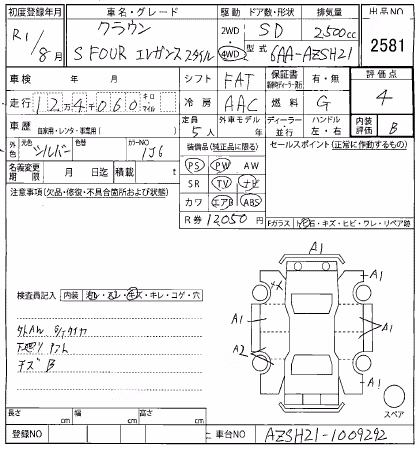 初度登録年月 車名・グレード 駆動 ドア数・形状 排気量 出品NO
R1/8月 クラウン 2WD・4WD SD 2500cc 2581
S FOUR エレガンス スタイル 型式 6AA-AZSH21
車検 年 月 シフト FAT 保証書 有・無 評価点
走行 124060 キロ マイル 冷房 AAC 燃料 G 4
車歴 自家用・レンタ・事業用( ) 定員 5人 外車モデル 年 ディーラー 並行 ハンドル 左・右 内装評価 B
外色 元色 シルバー 色替 カラーNO 1J6 装備品(純正品に限る) セールスポイント(正常に作動するもの)
名義変更期限 月 日迄 積載 t PS PW AW
注意事項(欠品・修復・不具合箇所および状態) SR TV ナビ
カワ エアB ABS
R券 12,050円 Fガラス 石・キズ・ヒビ・ワレ・リペア跡
A1
検査員記入 内装 キズ・キレ・コゲ・穴
XX A1
A1 A1
A2
キズ B
A1
スペア
長さ cm 幅 cm 高さ cm
登録NO 車台NO AZSH21-1009292